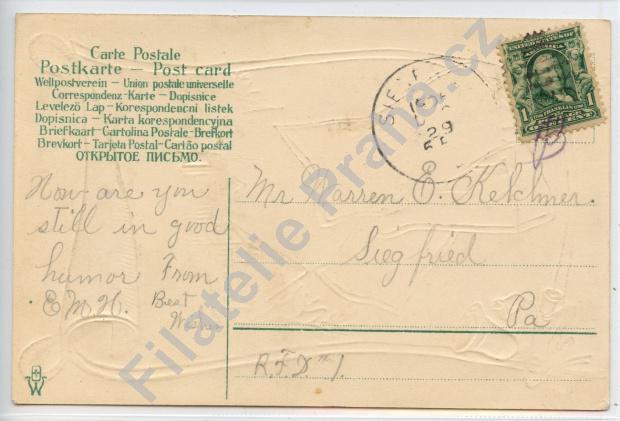 Carte Postale
Postkarte – Post card
Weltpostverein – Union postale universelle
Correspondenz-Karte – Dopisnice
Levelező Lap – Korespondenční lístek
Dopisnica – Karta korespondencyjna
Briefkaart – Cartolina Postale – Brefkort
Brevkort – Tarjeta Postal – Cartão postal
ОТКРЫТОЕ ПИСЬМО.
How are you
still in good
humor From
E M H. Best
Wishes
Mr Warren E. Kelchner.
Siegfried
Pa
R.F.D #1.
29
1 1
Filatelie Praha.cz
W